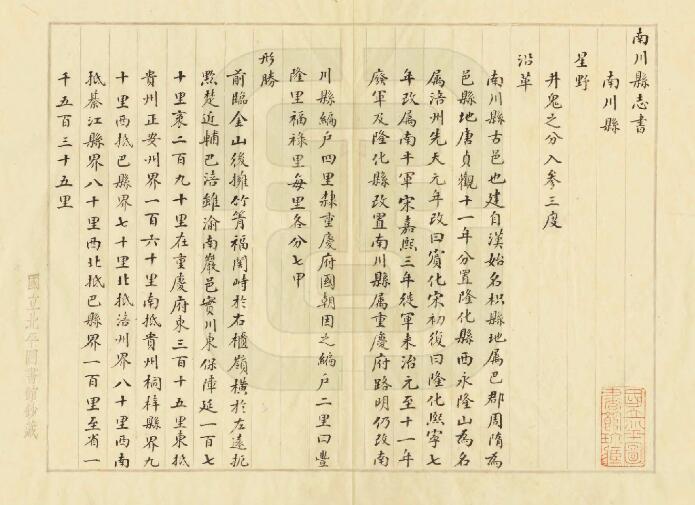 南川縣志書
南川縣
星野
井鬼之分入參三度
沿革
南川縣古邑也建自漢始名枳縣地属巴郡周隋為
邑縣地唐貞觀十一年分置隆化縣西永隆山為名
属涪州先天元年改曰賓化宋初復曰隆化熙寧七
年改属南平軍宋嘉熙三年徙軍来治元至十一年
廢軍及隆化縣改置南川縣属重慶府路明仍改南
川縣編户四里隸重慶府國朝因之編户二里曰豐
隆里福禄里每里各分七甲
形勝
前臨金山後擁竹箐福閣峙於右櫃嶺横於左遠扼
黔楚近輔巴涪雖渝南巖邑實川東保障延一百七
十里袤二百九十里在重慶府東三百十五里東抵
貴州正安州界一百六十里南抵貴州桐梓縣界九
十里西抵巴縣界七十里北抵涪州界八十里西南
抵綦江縣界八十里西北抵巴縣界一百里至省一
千五百三十五里
國立北平圖書館鈔藏
國立北平圖書館所藏